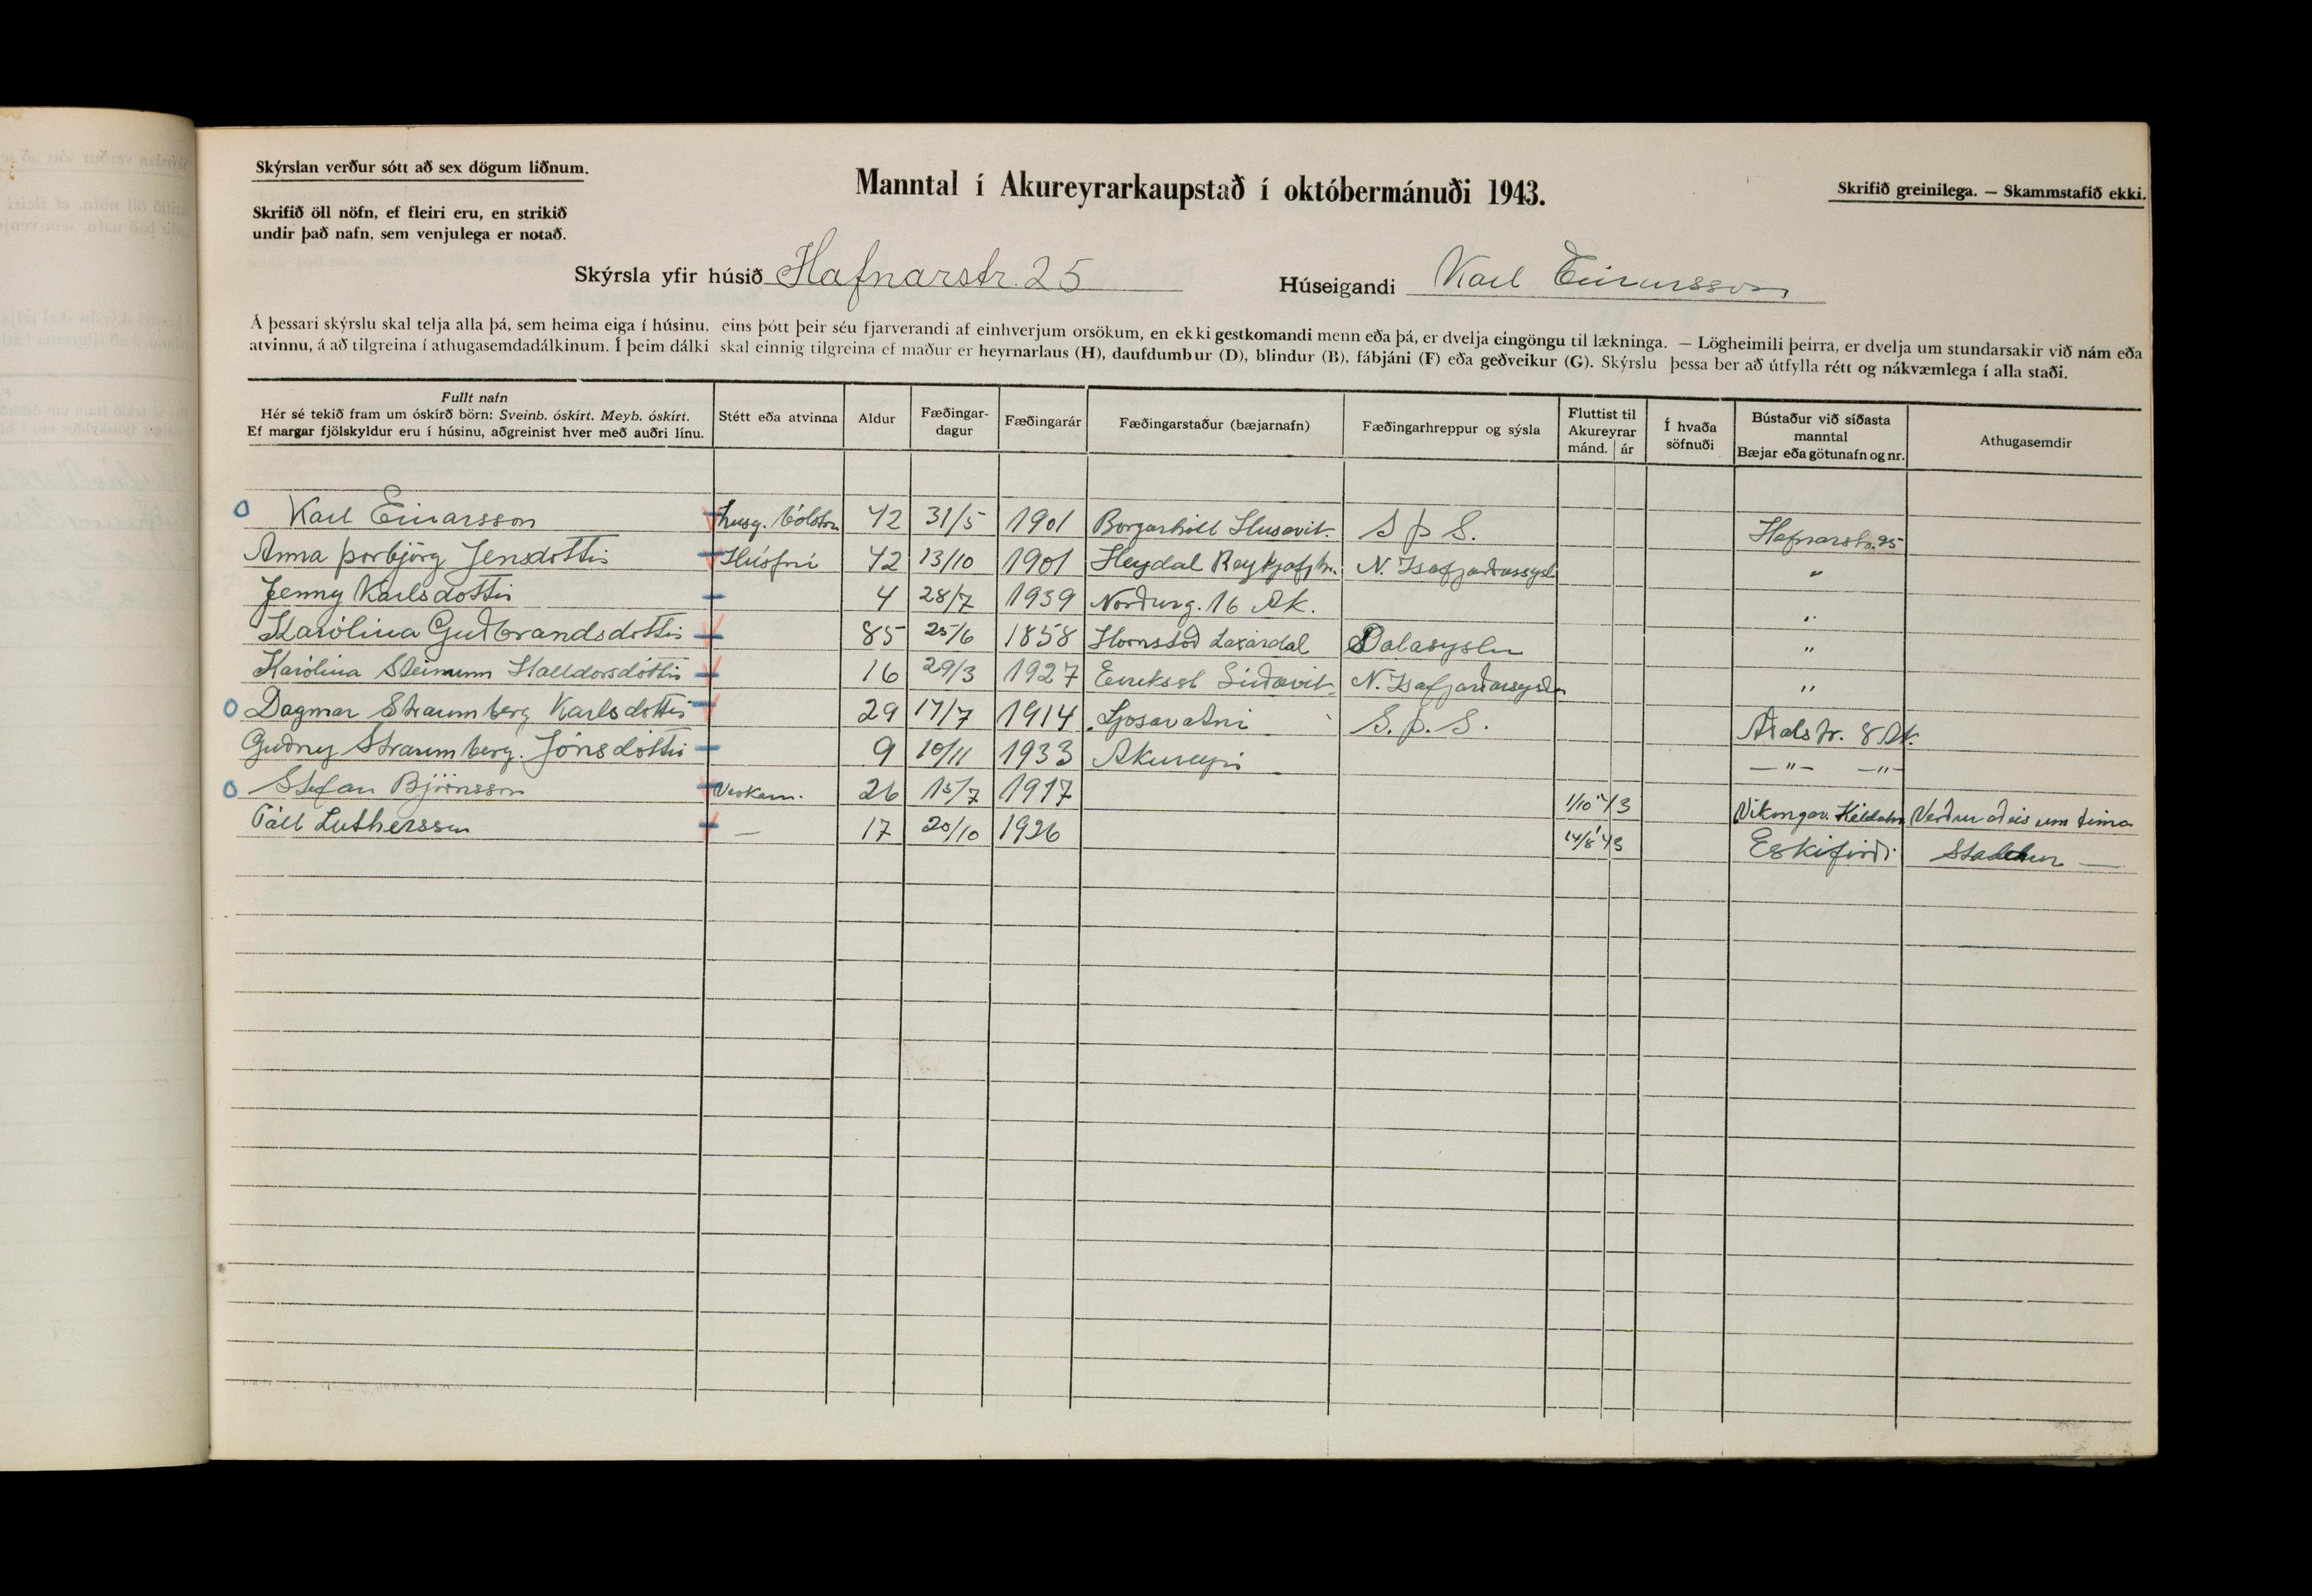 Skýrslan verður sótt að sex dögum liðnum.
Skrifið öll nöfn, ef fleiri eru, en strikið
undir það nafn, sem venjulega er notað.
Manntal í Akureyrarkaupstað í októbermánuði 1943.
Skrifið greinilega. — Skammstafið ekki.
Skýrsla yfir húsið Hafnarstr. 25 Húseigandi Karl Einarsson
Á þessari skýrslu skal telja alla þá, sem heima eiga í húsinu, eins þótt þeir séu fjarverandi af einhverjum orsökum, en ekki gestkomandi menn eða þá, er dvelja eingöngu til lækninga. — Lögheimili þeirra, er dvelja um stundarsakir við nám eða
atvinnu, á að tilgreina í athugasemdadálkinum. Í þeim dálki skal einnig tilgreina ef maður er heyrnarlaus (H), daufdumbur (D), blindur (B), fábjáni (F) eða geðveikur (G). Skýrslu þessa ber að útfylla rétt og nákvæmlega í alla staði.
Fullt nafn
Hér sé tekið fram um óskírð börn: Sveinb. óskírt. Meyb. óskírt.
Ef margar fjölskyldur eru í húsinu, aðgreinist hver með auðri línu.
Stétt eða atvinna
Aldur
Fæðingar-
dagur
Fæðingarár
Fæðingarstaður (bæjarnafn)
Fæðingarhreppur og sýsla
Fluttist til
Akureyrar
mánd. ár
Í hvaða
söfnuði
Bústaður við síðasta
manntal
Bæjar eða götunafn og nr.
Athugasemdir
Karl Einarsson húsg. bólstr 42 31/5 1901 Borgarhóll Húsavík. S þ S. Hafnarstr. 25
Anna Þorbjörg Jensdóttir Húsfrú 42 13/10 1901 Heydal Reykjafjhr. N. Ísafjarðarsýsl "
Jenny Karlsdóttir 4 28/7 1939 Norðurg. 16 Ak. "
Karólína Guðbrandsdóttir 85 25/6 1858 Hornstöð Laxárdal Dalasýslu "
Karólína Steinunn Halldórsdóttir 16 29/3 1927 Súðavík N. Ísafjarðarsýslu "
Dagmar Straumberg Karlsdóttir 29 17/7 1914 Ljósavatni S. þ. S. Aðalstr. 8 Ak.
Guðný Straumberg Jónsdóttir 9 10/11 1933 Akureyri — " — — " —
Stefán Björnsson Verkam. 26 15/7 1917 1/10 43 Víkingav. Kelduhv Verður aðeins um tíma
Páll Luthersson — 17 20/10 1926 14/8 43 Eskifirði —